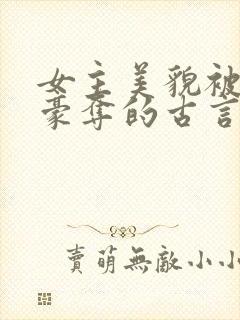 女主美貌被
豪奪的古言
賣萌無敵小小